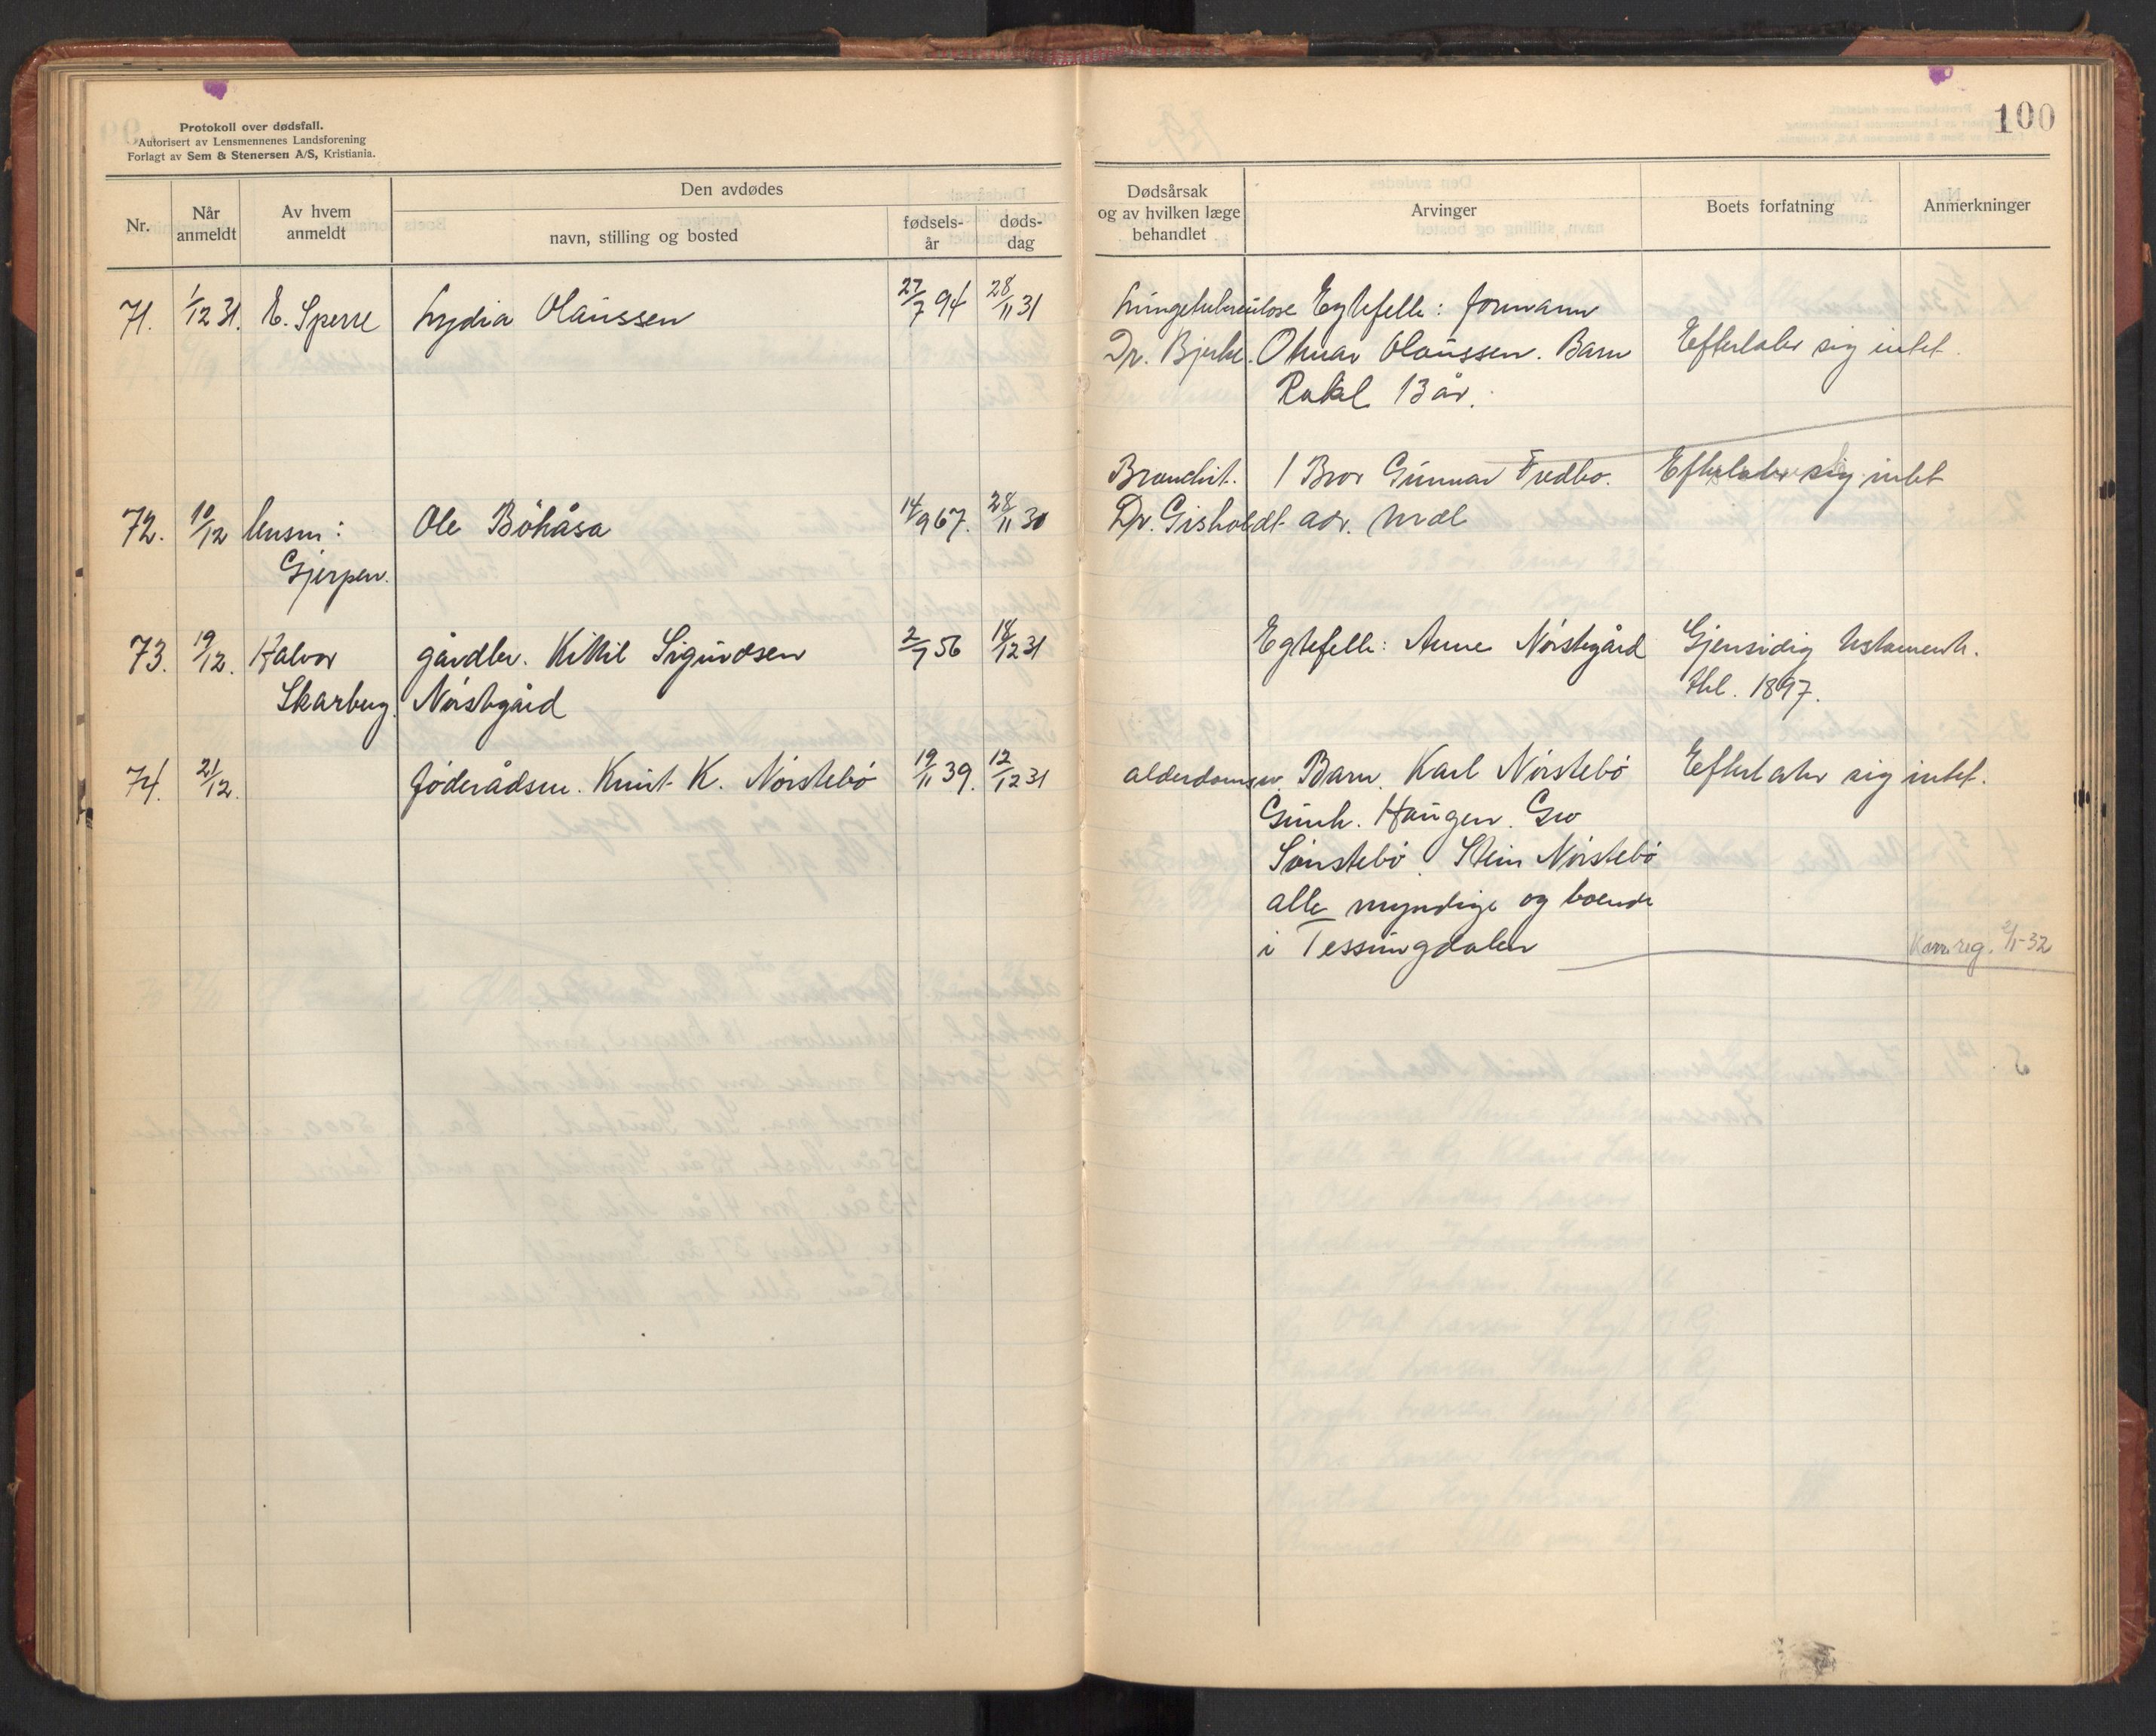 Protokoll over dødsfall.
Autorisert av Lensmennenes Landsforening
Forlagt av Sem & Stenersen A/S, Kristiania.
100
Nr.
Når anmeldt
Av hvem anmeldt
Den avdødes
navn, stilling og bosted
fødsels-år
døds-dag
Dødsårsak og av hvilken læge behandlet
Arvinger
Boets forfatning
Anmerkninger
71. 1/12 31. E. Sperre Lydia Olaussen 27/7 94 28/11 31 Lungetuberculose Egtefelle: formann
Dr. Bjerke. Otmar Olaussen. Barn Efterlater sig intet.
Rakel 13 år.
Bronchit. 1 Bror Gunnar Fredbo. Efterlater sig intet
72. 10/12 lensm: Ole Böhåsa 14/9 67. 28/11 30 Dr. Gisholdt adr. Mæl
Gjerpen.
73. 19/12. Halvor gårdbr. Kittil Sigurdsen 2/7 56 18/12 31 Egtefelle: Anne Norstegård Gjensidig testament.
Skarberg. Norstegård tbl. 1897.
74. 21/12. föderådsm. Knut K. Nörstebö 19/11 39. 12/12 31 alderdomsv. Barn. Karl Nörstebö Efterlater sig intet.
Gunh. Haugen. Gro
Sönstebö. Stein Nörstebö
alle myndige og boende
i Tessungdalen
Kavr.reg. 2/1-32